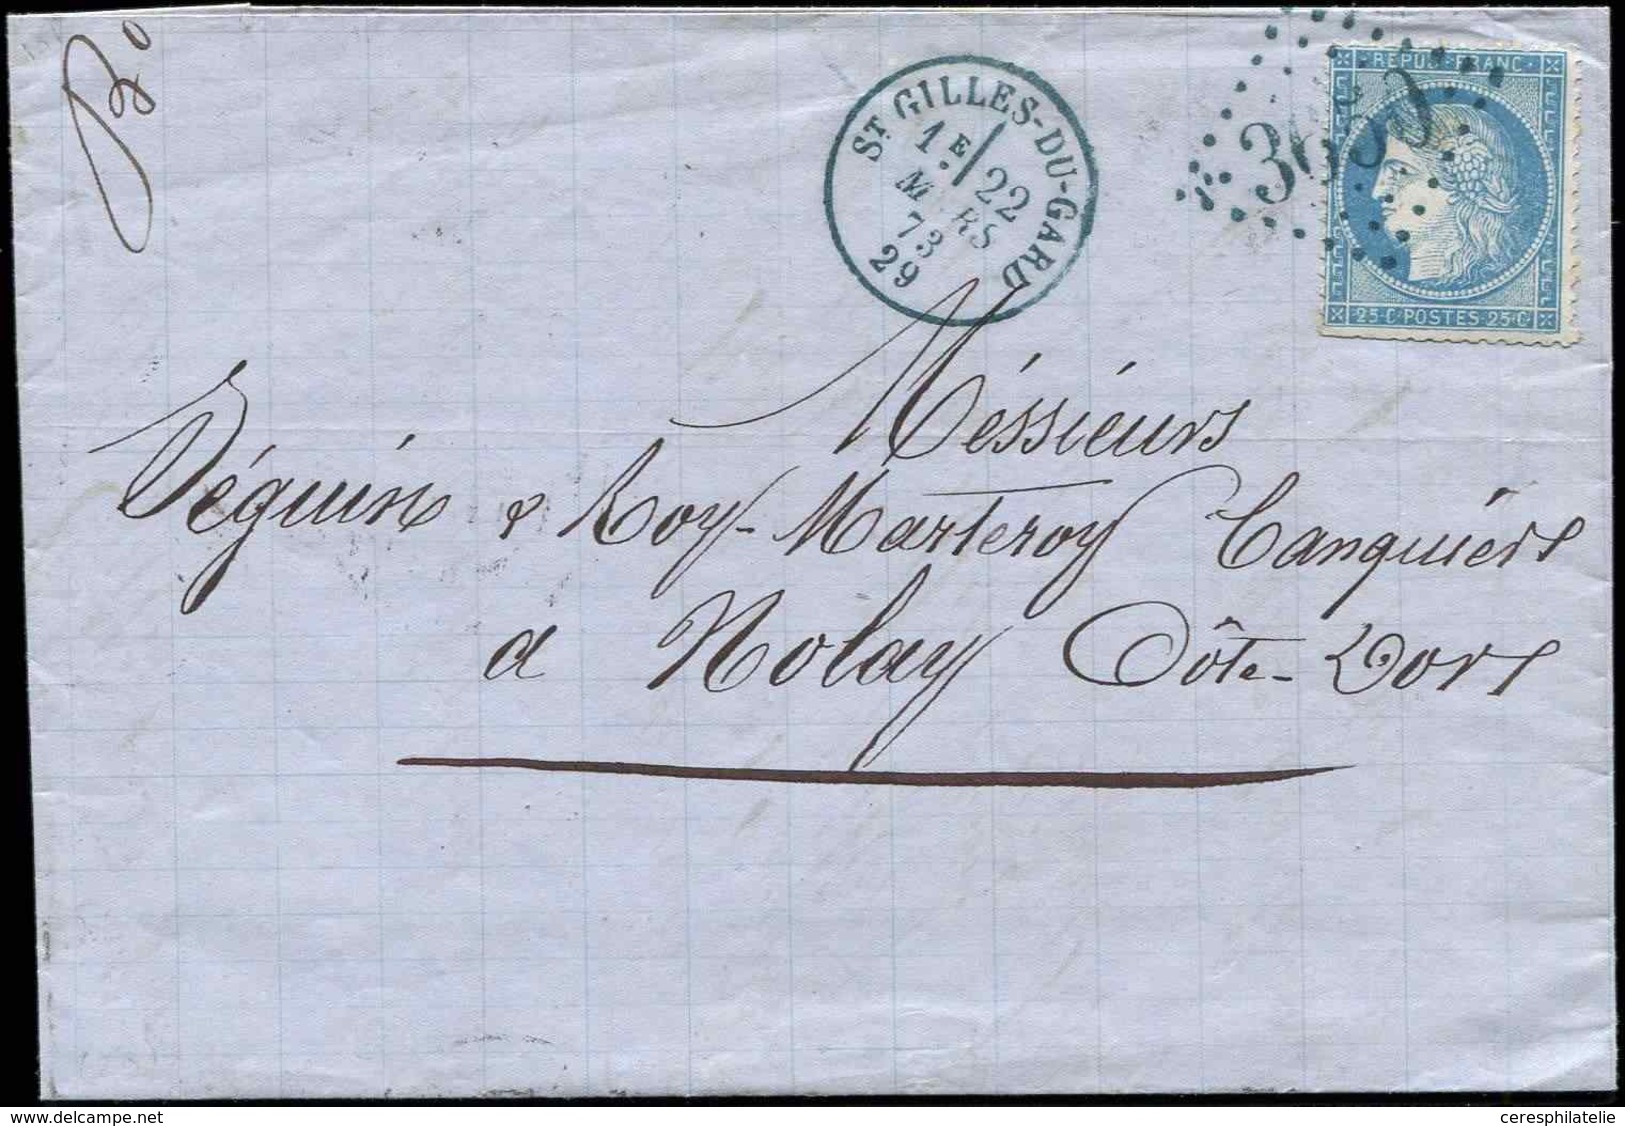 Bo
ST GILLES-DU-GARD
1E/
22
MARS
73
29
REPUB·FRANC·
25·C·POSTES·25·C
Méssieurs
Séguin & Roy-Marteroy Banquiers
a Nolay Côte-Dors
delcampe.net
ceresphilatelie